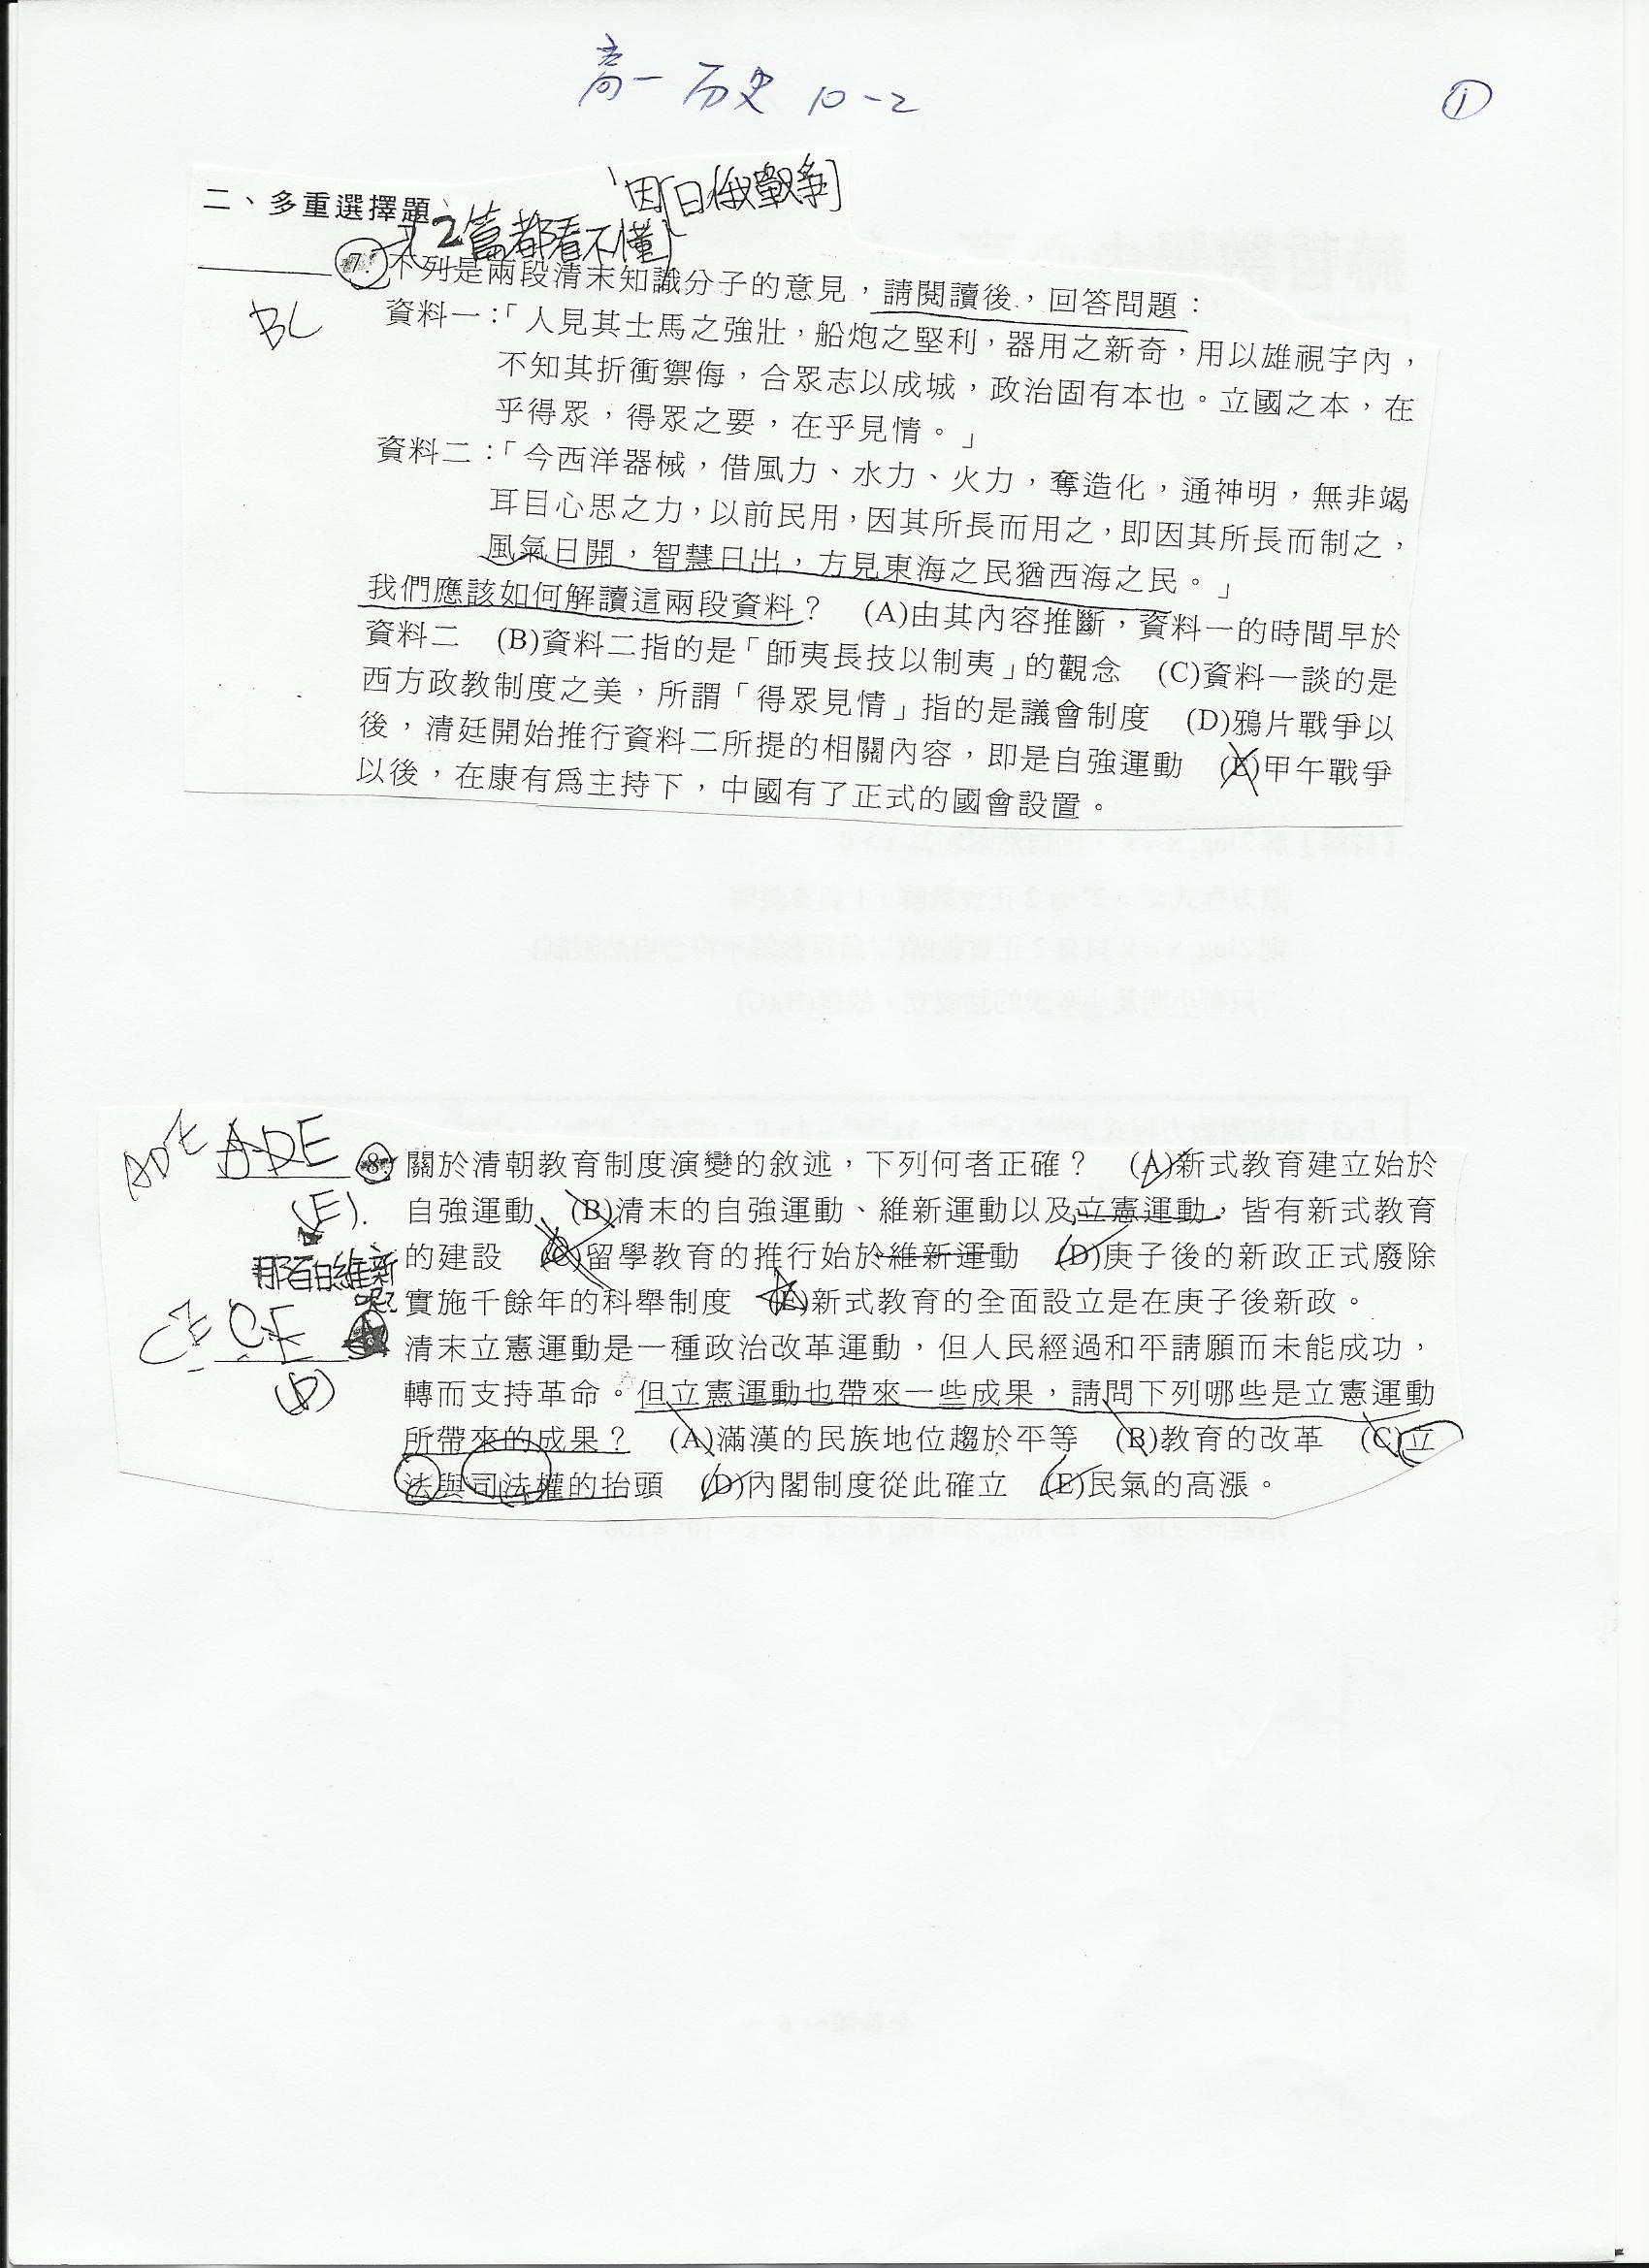 高一 历史 10-2
①
因[日俄戰爭]
二、多重選擇題
(2篇都看不懂)
7. 下列是兩段清末知識分子的意見,請閱讀後,回答問題:
BC
資料一:「人見其士馬之強壯,船炮之堅利,器用之新奇,用以雄視宇內,
不知其折衝禦侮,合眾志以成城,政治固有本也。立國之本,在
乎得眾,得眾之要,在乎見情。」
資料二:「今西洋器械,借風力、水力、火力,奪造化,通神明,無非竭
耳目心思之力,以前民用,因其所長而用之,即因其所長而制之,
風氣日開,智慧日出,方見東海之民猶西海之民。」
我們應該如何解讀這兩段資料? (A)由其內容推斷,資料一的時間早於
資料二 (B)資料二指的是「師夷長技以制夷」的觀念 (C)資料一談的是
西方政教制度之美,所謂「得眾見情」指的是議會制度 (D)鴉片戰爭以
後,清廷開始推行資料二所提的相關內容,即是自強運動 (E)甲午戰爭
以後,在康有爲主持下,中國有了正式的國會設置。
ADE ADE 8. 關於清朝教育制度演變的敘述,下列何者正確? (A)新式教育建立始於
(E). 自強運動 (B)清末的自強運動、維新運動以及立憲運動,皆有新式教育
那百日維新 的建設 (C)留學教育的推行始於維新運動 (D)庚子後的新政正式廢除
呢? 實施千餘年的科舉制度 (E)新式教育的全面設立是在庚子後新政。
CE CE 清末立憲運動是一種政治改革運動,但人民經過和平請願而未能成功,
(D) 轉而支持革命。但立憲運動也帶來一些成果,請問下列哪些是立憲運動
所帶來的成果? (A)滿漢的民族地位趨於平等 (B)教育的改革 (C)立
法與司法權的抬頭 (D)內閣制度從此確立 (E)民氣的高漲。